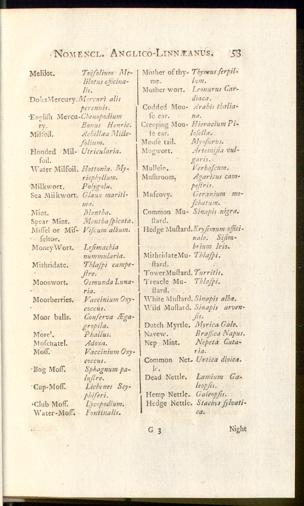 NOMENCL. ANGLICO-LINNÆANUS. 53
Melilot. Trifolium Me-
lilotus officina-
lis.
Dog's Mercury. Mercuri alis
perennis.
English Mercu- Chenopodium
ry. Bonus Henric.
Milfoil. Achillæa Mille-
folium.
Hooded Mil- Utricularia.
foil.
Water Milfoil. Hottonia. My-
riophyllum.
Milkwort. Polygala.
Sea Milkwort. Glaux mariti-
ma.
Mint. Mentha.
Spear Mint. Mentha spicata.
Missel or Mis- Viscum album.
seltoe.
Money Wort. Lysimachia
nummularia.
Mithridate. Thlaspi campe-
stre.
Moonwort. Osmunda Luna-
ria.
Moorberries. Vaccinium Oxy-
coccus.
Moor balls. Conferva Æga-
gropila.
Morel. Phallus.
Moschatel. Adoxa.
Moss. Vaccinium Oxy-
coccus.
Bog Moss. Sphagnum pa-
lustre.
Cup-Moss. Lichenes Scy-
phiferi.
Club Moss. Lycopodium.
Water-Moss. Fontinalis.
Mother of thy- Thymus serpil-
me. lum.
Mother wort. Leonurus Car-
diaca.
Codded Mou- Arabis thalia-
se ear. na.
Creeping Mou- Hieracium Pi-
se ear. losella.
Mouse tail. Myosurus.
Mugwort. Artemisia vul-
garis.
Mullein. Verbascum.
Mushroom. Agaricus cam-
pestris.
Muscovy. Geranium mo-
schatum.
Common Mu- Sinapis nigra.
stard.
Hedge Mustard. Erysimum offici-
nale. Sisym-
brium Irio.
Mithridate Mu- Thlaspi.
stard.
Tower Mustard. Turritis.
Treacle Mu- Thlaspi.
stard.
White Mustard. Sinapis alba.
Wild Mustard. Sinapis arven-
sis.
Dutch Myrtle. Myrica Gale.
Navew. Brassica Napus.
Nep Mint. Nepeta Cata-
ria.
Common Net- Urtica dioica.
le.
Dead Nettle. Lamium Ga-
leopsis.
Hemp Nettle. Galeopsis.
Hedge Nettle. Stachys sylvati-
ca.
G 3 Night